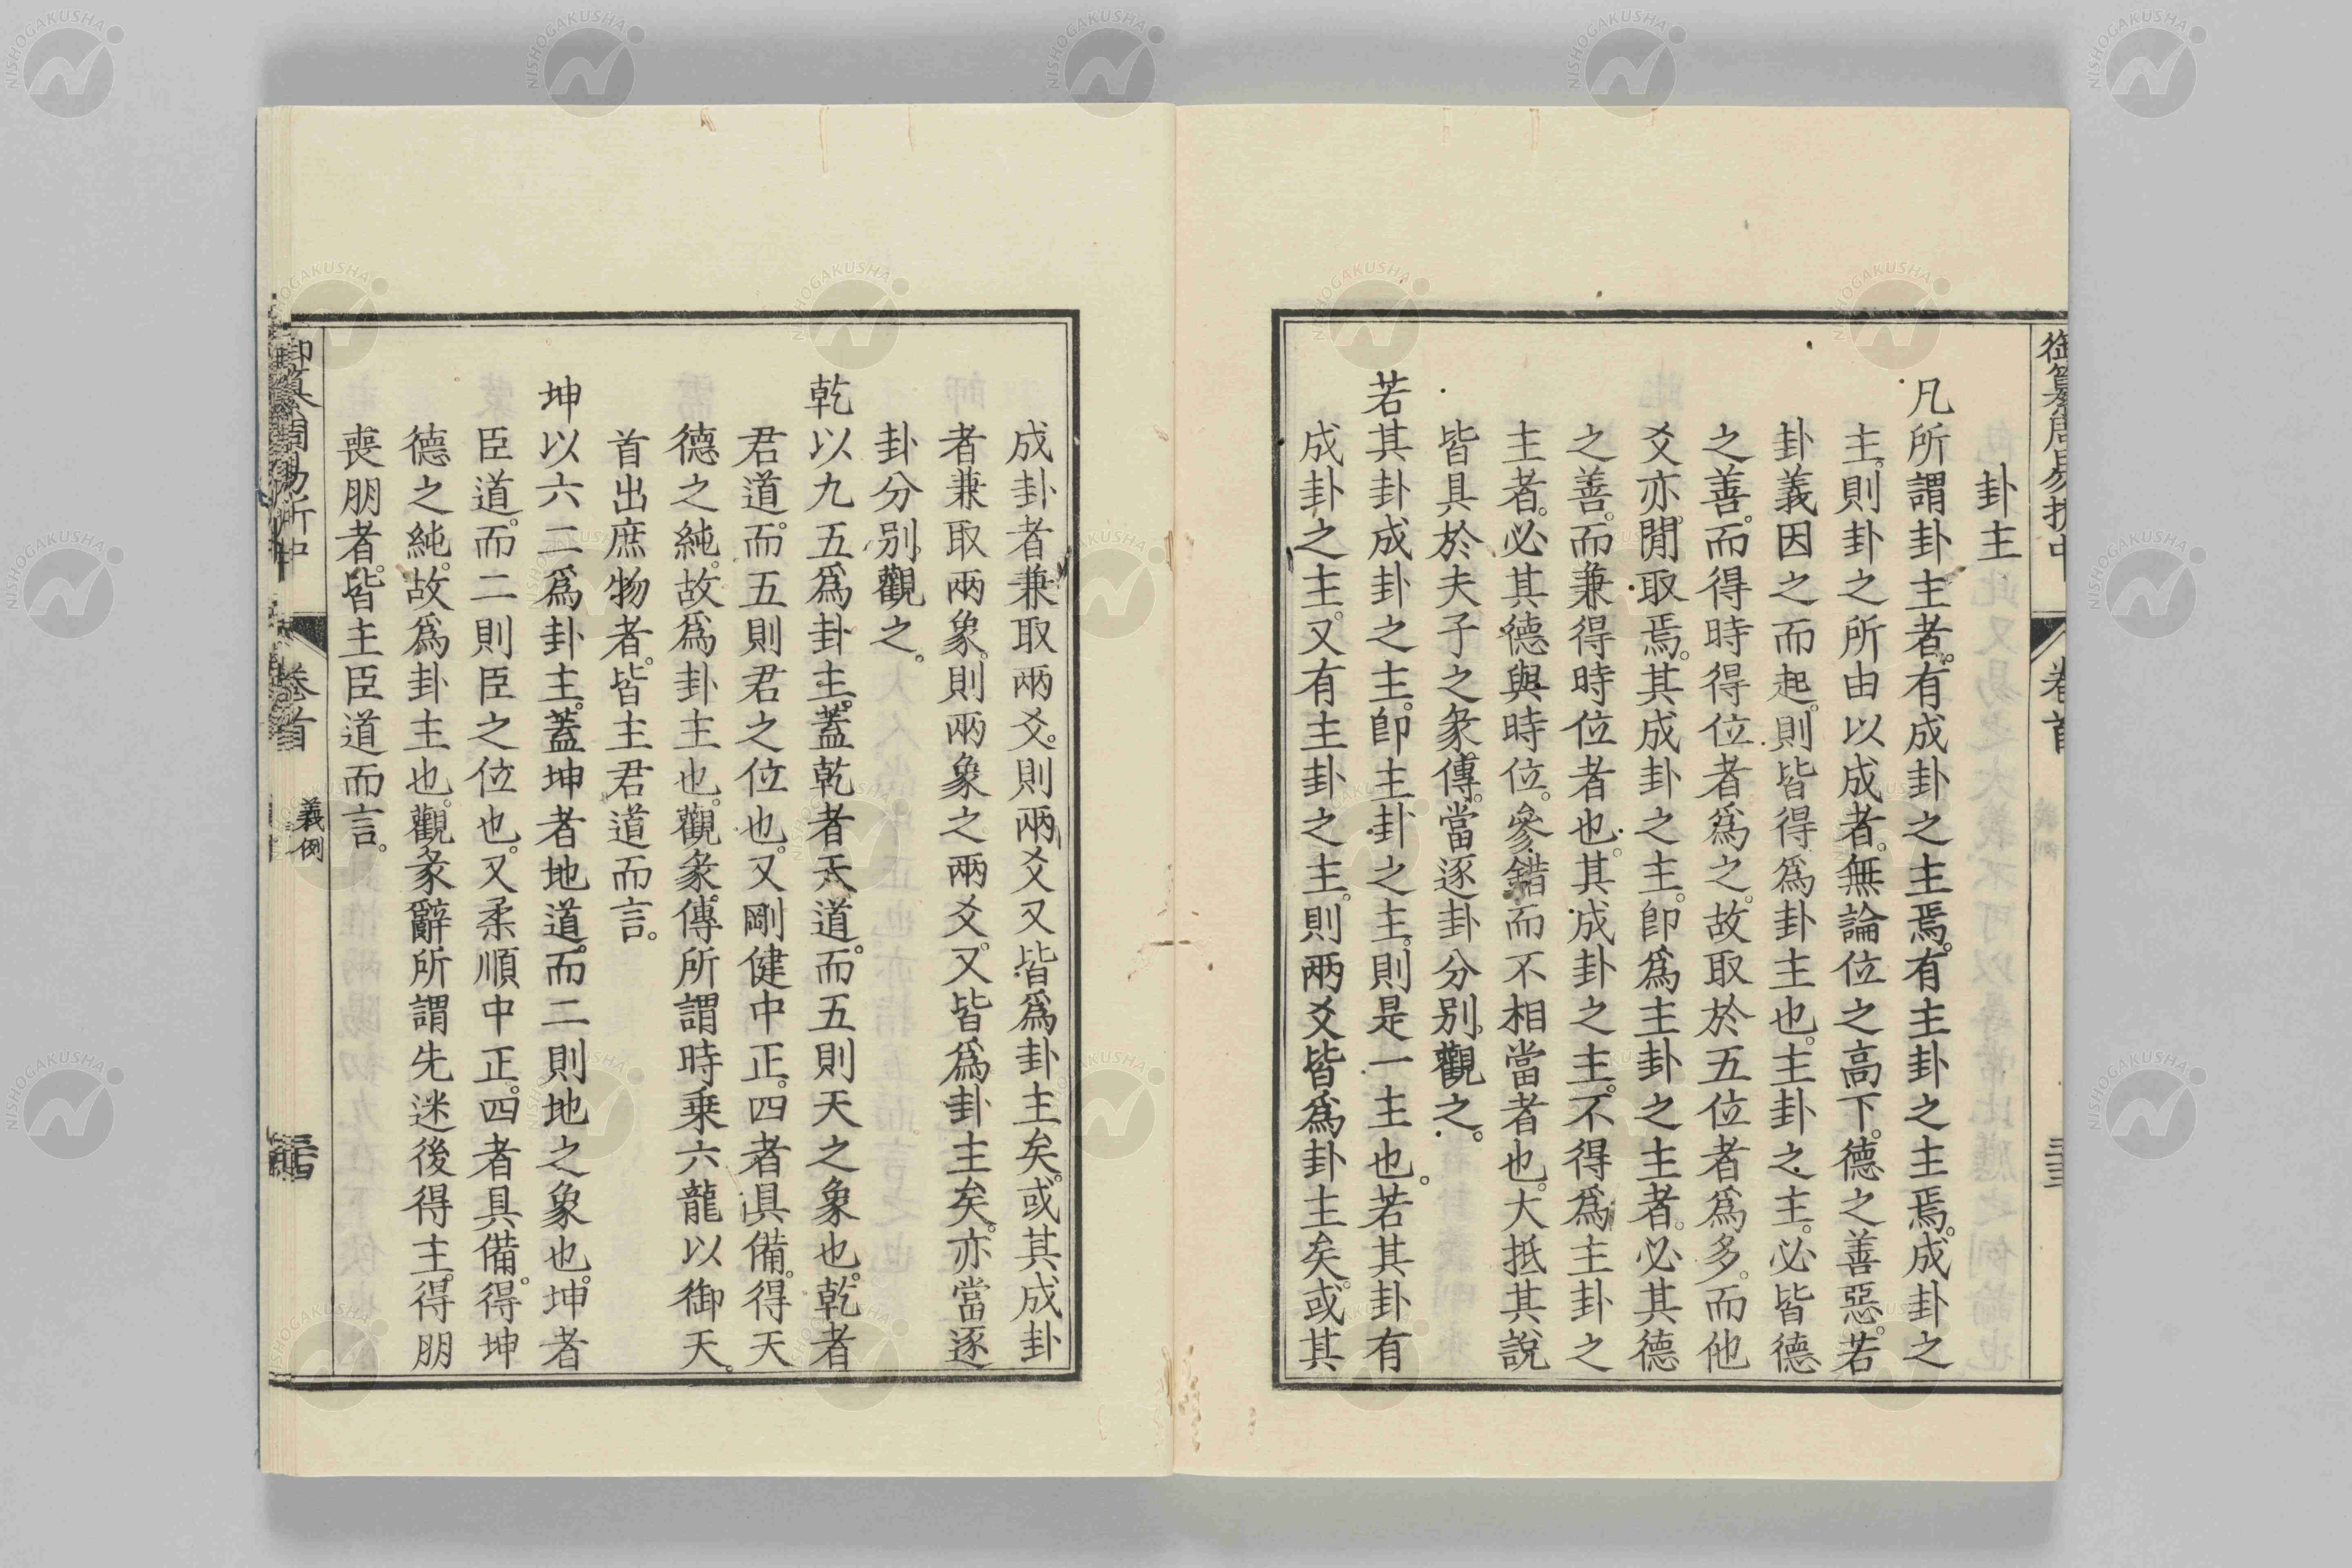 御纂周易折中
卷首
卦主
凡所謂卦主者。有成卦之主焉。有主卦之主焉。成卦之
主。則卦之所由以成者。無論位之高下。德之善惡。若
卦義因之而起。則皆得爲卦主也。主卦之主。必皆德
之善。而得時得位者爲之。故取於五位者爲多。而他
爻亦閒取焉。其成卦之主。卽爲主卦之主者。必其德
之善。而兼得時位者也。其成卦之主。不得爲主卦之
主者。必其德與時位。參錯而不相當者也。大抵其說
皆具於夫子之彖傳。當逐卦分別觀之。
若其卦成卦之主。卽主卦之主。則是一主也。若其卦有
成卦之主。又有主卦之主。則兩爻皆爲卦主矣。或其
成卦者兼取兩爻。則兩爻又皆爲卦主矣。或其成卦
者兼取兩象。則兩象之兩爻。又皆爲卦主矣。亦當逐
卦分別觀之。
乾以九五爲卦主。蓋乾者天道。而五則天之象也。乾者
君道。而五則君之位也。又剛健中正。四者具備。得天
德之純。故爲卦主也。觀彖傳所謂時乘六龍以御天。
首出庶物者。皆主君道而言。
坤以六二爲卦主。蓋坤者地道。而二則地之象也。坤者
臣道。而二則臣之位也。又柔順中正。四者具備。得坤
德之純。故爲卦主也。觀彖辭所謂先迷後得主。得朋
喪朋者。皆主臣道而言。
御纂周易折中
卷首
義例
NISHOGAKUSHA